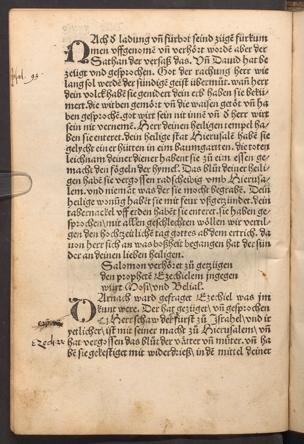 Nach d ladung vñ fürbot seind züge fürkum
men vffgenome vñ verhört wordē aber der
Sathan der versaß das. Vñ Dauid hat be
zeügt vnd gesprochen. Got der rachung herr wie
lang sol werde der sündige geist übermüt. wañ herr
dein volck habē sie genidert dein erb haben sie bekü
mert. die witben gemört vñ die waisen getöt vñ ha
ben gesprochē. got wirt sein nit innē vñ d herr wirt
sein nit vernemē. Herr deinen heiligen tempel ha
ben sie enteret. dein heilige stat Hierusalē habē sie
gelycht einer hütten in eim baumgarten. die toten
leichnam deiner diener habent sie zū eim essen ge-
macht den fögeln der hymel. Das blūt deiner heili-
gen habē sie vergossen vmb Hierusa-
lem. vnd niemāt was der sie mocht begrabē. Dein
heilige wonūg habēt sie mit feür vßgezündet. dein
tabernackel vff erden habēt sie enteret. sie haben ge-
sprochen mit allen geschlechten wöllen wir vertil-
gen den hochzeitlichē tag gottes ab dem ertrich. da
uon herr sich an was boßheit begangen hat der sün
der an deinen lieben heiligen.
Salomon verhöret zū gezügen
den prophetē Ezechielem zūgegen
wirt Mosi vnd Belial.
Darnach ward gefraget Ezechiel was jm
kunt were. Der hat gezüget vñ gesprochen
Herr schaw der fürst zū Israhel vnd ir
yetlicher ist mit seiner macht zū Hierusalem vñ
hat vergossen das blūt der vätter vñ mūter. vñ ha
bē sie gekestiget mit widerdrieß in dē mittel deiner